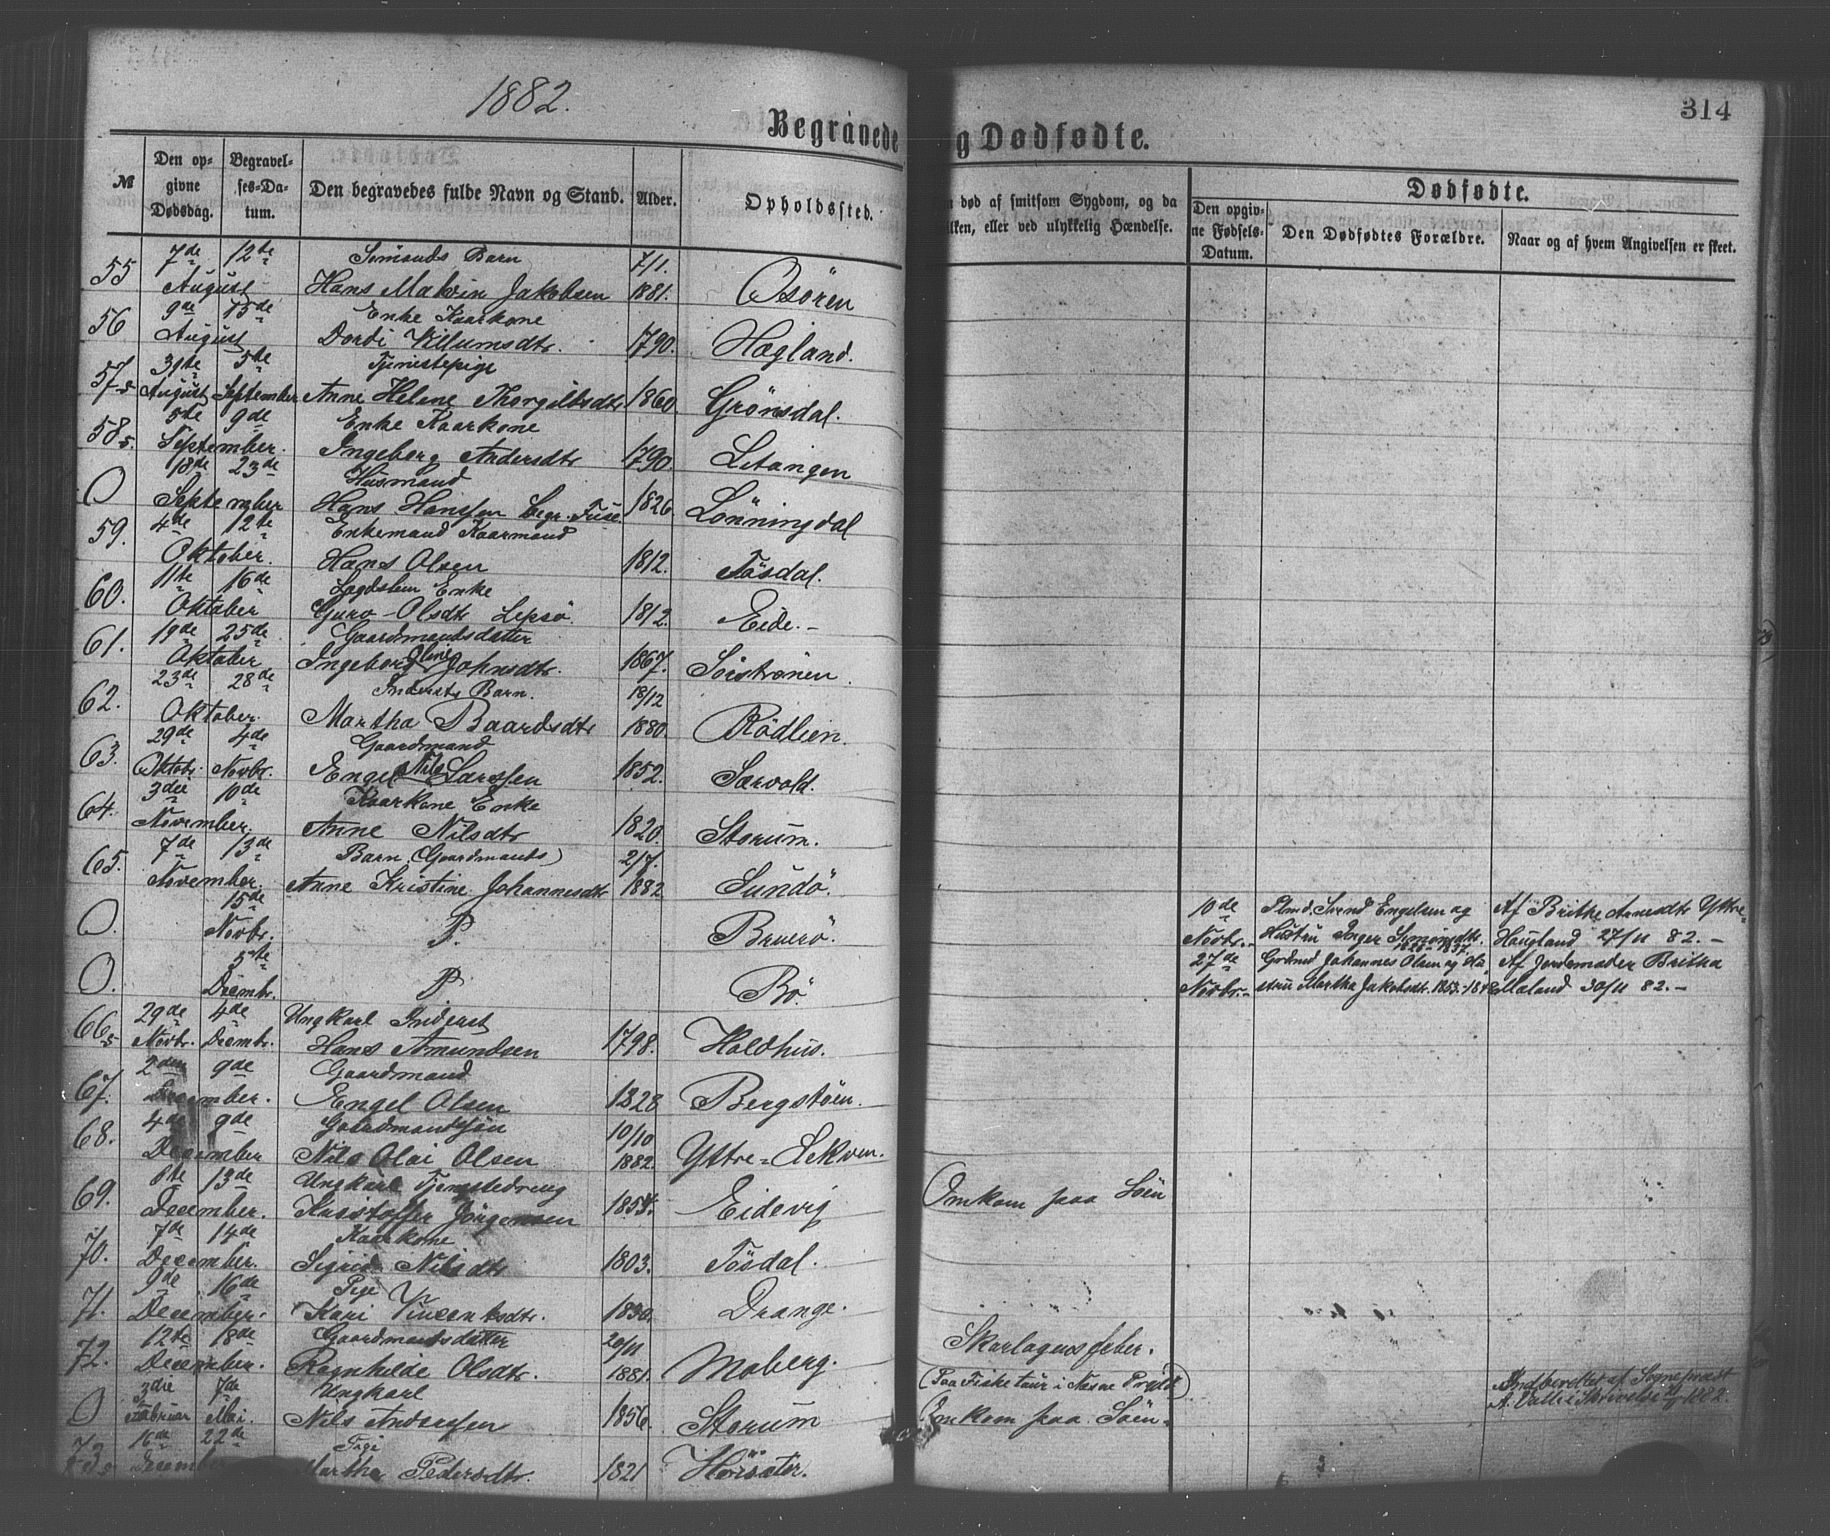 1882.
314
Begravede
g Dødfødte.
№
Den op-
givne
Dødsdag.
Begravel-
ses-Da-
tum.
Den begravedes fulde Navn og Stand.
Alder.
Opholdssted.
n død af smitsom Sygdom, og da
ilken, eller ved ulykkelig Hændelse.
Dødfødte.
Den opgiv-
ne Fødsels-
Datum.
Den Dødfødtes Forældre.
Naar og af hvem Angivelsen er skeet.
7de 12te Sømands Barn 7/1.
55 August Hans Malvin Jakobsen 1881. Osören
9de 15de Enke Kaarkone
56 August Dordi Villumsdtr. 1790. Hægland.
5te Tjenestepige
57 s August September Anne Helene Thorgilsdtr 1860. Grönsdal.
5te 9de Enke Kaarkone
58 s. September. Ingeborg Andersdtr 1790. Litangen
18de 23de Husmand
0 September Hans Hansen begr. Fuse 1826. Lönningdal
4de 12te Enkemand Kaarmand
59. Oktober. Hans Olsen 1812. Tösdal.
11te 16de Enke
60. Oktober Guro Olsdtr Lepsö. 1812. Eide.-
19de 25de Gaardmandsdatter
61. Oktober Ingeborg Oline Johnsdtr. 1867. Söistrønen
23de 28de Inderst's Barn. 18/12
62. Oktober. Martha Baardsdtr 1880. Rödlien.
29de 4de Gaardmand
63. Oktobr. Novbr. Engel Nils Larssen 1852. Særvold.
3die 10de Kaarkone Enke
64. November. Anne Nilsdtr 1820. Storum.
7de 13de Barn (Gaardmands) 2/7.
65. November. Anne Kristine Johannesdtr 1882. Sundö.
15de
0. Novbr. P. Bruerö.
10de Svend Engelsen og Af Brithe Arnesdtr Yttre-
Novbr.- Hustru Inger Haugland 27/11 82.-
5te
0. Decmbr. P Bö
27de Johannes Olsen og Hu Af Jordemoder Britha
Novbr.- stru Martha Jakobsdtr. 1853.-1848 Maland 30/11 82.-
29de 4de Ungkarl Inderst
66 s Novbr. Decmbr. Hans Amundsen 1798. Holdhus.
2den 9de Gaardmand
67. December. Engel Olsen 1828 Bergstöen.
4de 9de Gaardmandssøn 10/10
68. December Nils Olai Olsen 1882. Yttre-
6te 13de Ungkarl Tjenestedreng
69. December. Kristoffer Jörgensen Eidevig Omkom paa Söen
7de 14de Kaarkone
70. December. Sigrid Nilsdtr 1803. Tösdal.
9de 16de Pige
71. December. Kari Vincentsdtr. 1830. Drange.
12te 18de Gaardmandsdatter 20/11
72. December. Ragnhilde Olsdtr. 1881. Moberg. Skarlagensfeber.
3die 7de Ungkarl (Paa Fisketour i
0 Februar Mai. Nils Anderssen 1856. Storum Omkom paa Söen-
Indberettet af Sogneprest
A. Valle i Skrivelse 1882.
16de 22de Pige
73 s December Martha Pedersdtr. 1821